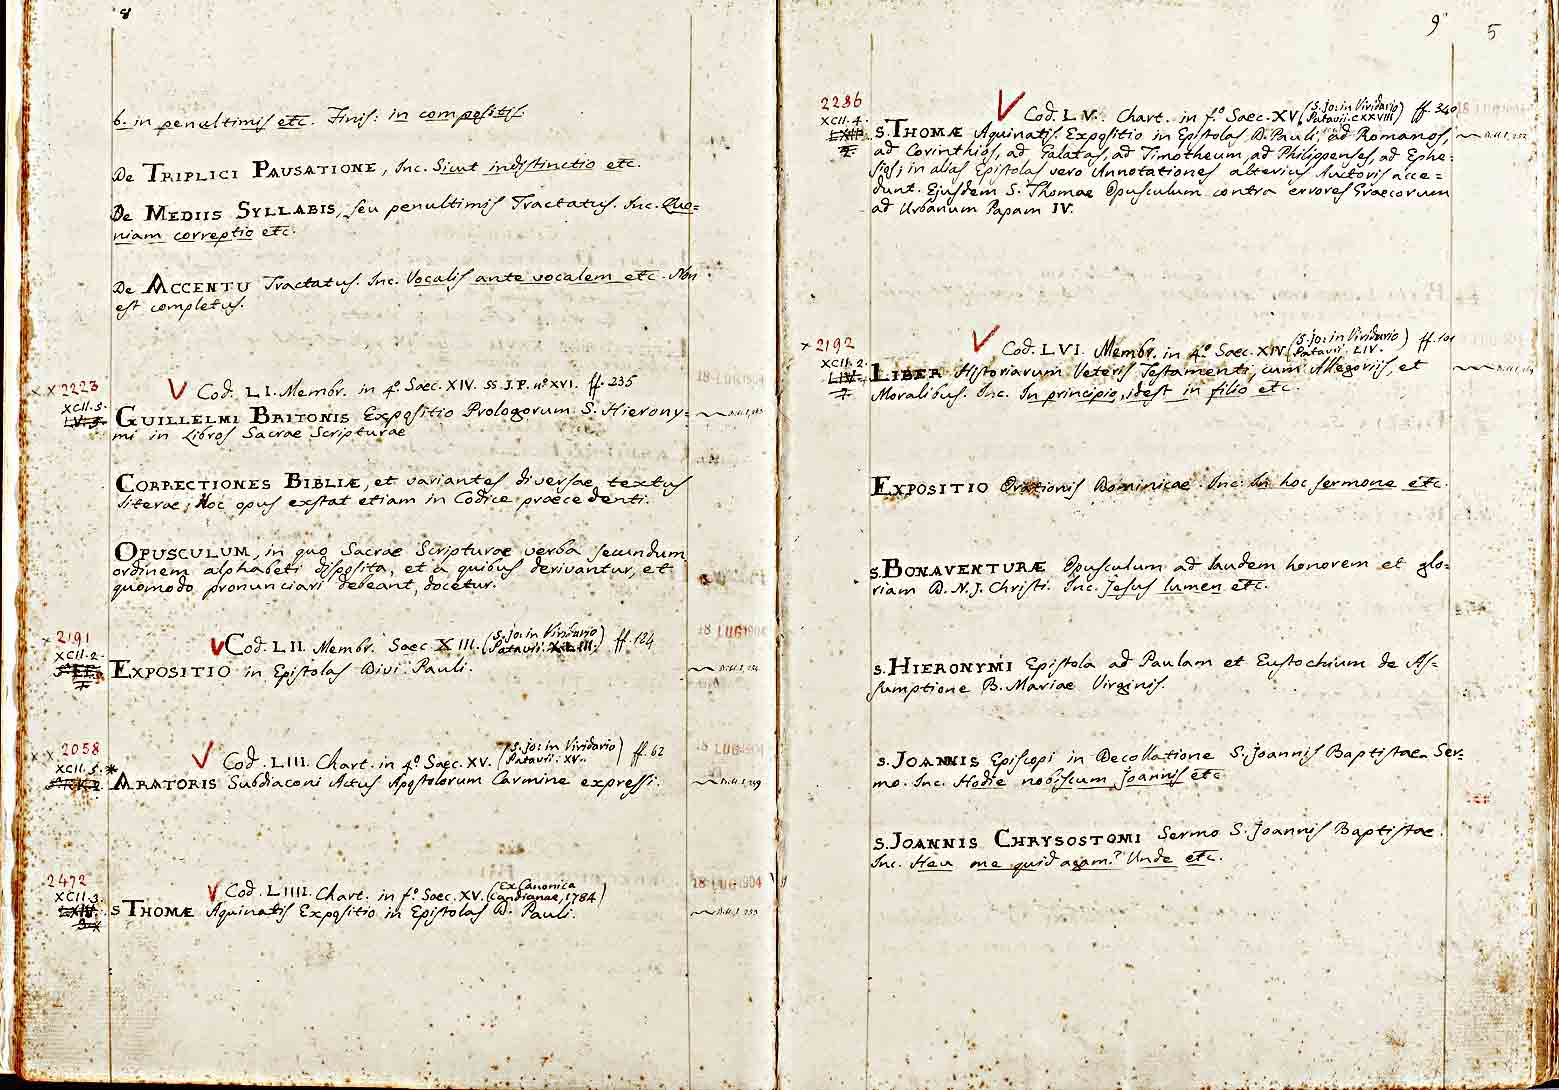 8
b. in penultimis etc. Finis: in compositis.
De TRIPLICI PAUSATIONE, Inc. Sicut indistinctio etc.
De MEDIIS SYLLABIS, seu penultimis Tractatus. Inc. Quo=
niam correptio etc.
De ACCENTU Tractatus. Inc. Vocalis ante vocalem etc. Non
est completus.
x x 2223
XCII. 5.
Cod. LI. Membr. in 4.º Saec. XIV. SS. J. P. nº XVI. ff. 235
18 LUG 1904
GUILLELMI BRITONIS Expositio Prologorum S. Hierony=
mi in Libros Sacrae Scripturae
CORRECTIONES BIBLIÆ, et variantes diversae textus
literae; Hoc opus exstat etiam in Codice praecedenti.
OPUSCULUM, in quo Sacrae Scripturae verba secundum
ordinem alphabeti disposita, et a quibus derivantur, et
quomodo pronunciari debeant, docetur.
x 2191
XCII. 2.
Cod. LII. Membr. Saec. XIII. (S. Jo: in Viridario
Patavii. XLIII.) ff. 124
18 LUG 1904
EXPOSITIO in Epistolas Divi Pauli.
x x 2058
XCII. 5. *
Cod. LIII. Chart. in 4.º Saec. XV. (S. Jo: in Viridario
Patavii. XV.) ff. 62
18 LUG 1904
ARATORIS Subdiaconi Actus Apostolorum Carmine expressi.
2472
XCII. 3.
Cod. LIIII. Chart. in fº. Saec. XV. (Ex Canonica
Candianae, 1784)
18 LUG 1904
S THOMÆ Aquinatis Expositio in Epistolas D. Pauli.
9
5
2286
XCII. 4.
Cod. LV. Chart. in fº. Saec. XV. (S. Jo: in Viridario
Patavii. CXXVIII) ff. 340
S. THOMÆ Aquinatis. Expositio in Epistolas D. Pauli, ad Romanos,
ad Corinthios, ad Galatas, ad Timotheum, ad Philippenses, ad Ephe=
sios; in alias Epistolas vero Annotationes alterius Auctoris acce=
dunt. Ejusdem S. Thomae Opusculum contra errores Graecorum
ad Urbanum Papam IV.
x 2192
XCII. 2.
LIV.
Cod. LVI. Membr. in 4.º Saec. XIV (S. Jo: in Viridario
Patavii. LIV.) ff. 101
LIBER Historiarum Veteris Testamenti, cum Allegoriis, et
Moralibus. Inc. In principio, idest in filio etc.
EXPOSITIO Orationis Dominicae. Inc: In hoc sermone etc.
S. BONAVENTURÆ Opusculum ad laudem honorem et glo=
riam D. N. J. Christi. Inc. Jesus lumen etc.
S. HIERONYMI Epistola ad Paulam et Eustochium de As=
sumptione B. Mariae Virginis.
S. JOANNIS Episcopi in Decollatione S. Joannis Baptistae Ser=
mo. Inc. Hodie nobiscum Joannis etc
S. JOANNIS CHRYSOSTOMI Sermo S. Joannis Baptistae.
Inc. Heu me quid agam? Unde etc.